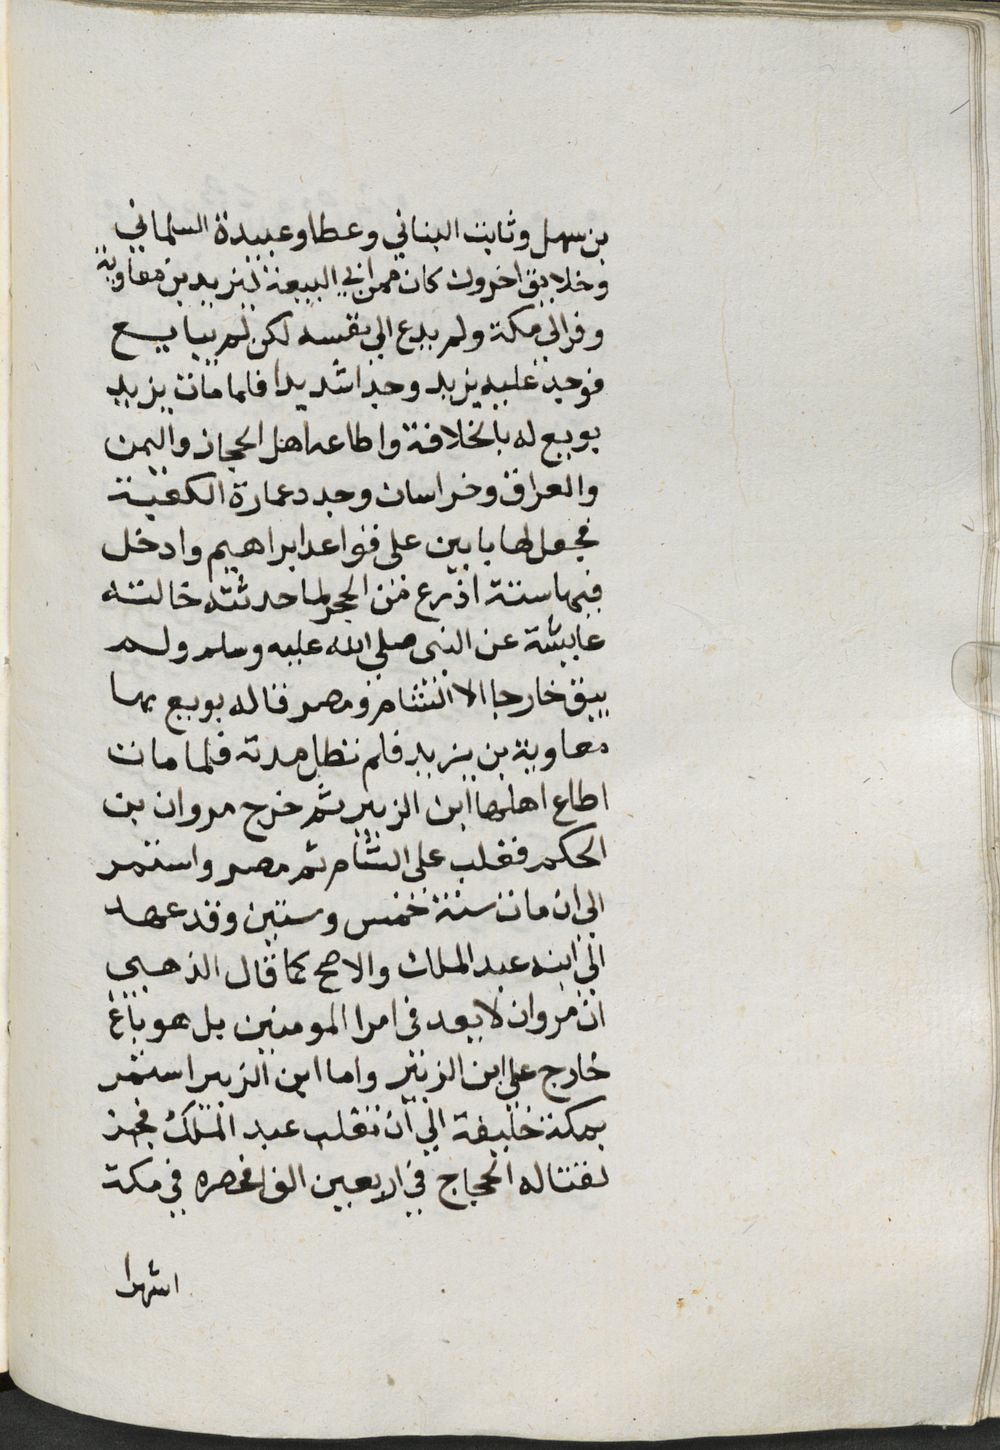 بن سهل وثابت البناني وعطا وعبيدة السلماني
وخلايق اخرون كان ممن ابي البيعة ليزيد بن معاوية
وفر الي مكة ولم يدع الي نفسه لكن لم يبايع
فوجد عليه يزيد وجدا شديدا فلما مات يزيد
بويع له بالخلافة واطاعه اهل الحجاز واليمن
والعراق وخراسان وجدد عمارة الكعبة
فجعل لها بابين على قواعد ابراهيم وادخل
فيها ستة اذرع من الحجر لما حدثته خالته
عايشة عن النبي صلي الله عليه وسلم ولم
يبق خارجا الا الشام ومصر فانه بويع بها
معاوية بن يزيد فلم تطل مدته فلما مات
اطاع اهلها ابن الزبير ثم خرج مروان بن
الحكم فغلب على الشام ثم مصر واستمر
الي ان مات سنة خمس وستين وقد عهد
الي ابنه عبد الملك والاصح كما قال الذهبي
ان مروان لا يعد في امرا المومنين بل هو باغ
خارج علي ابن الزبير واما ابن الزبير استمر
بمكة خليفة الي ان تغلب عبد الملك فجهز
لقتاله الحجاج في اربعين الفا فحصره في مكة
اشهرا